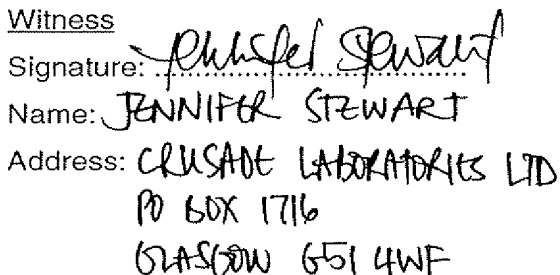 Witness
Signature: Jennifer Stewart
Name: JENNIFER STEWART
Address: CRUSADE LABORATORIES LTD
PO BOX 1716
GLASGOW G51 4WF